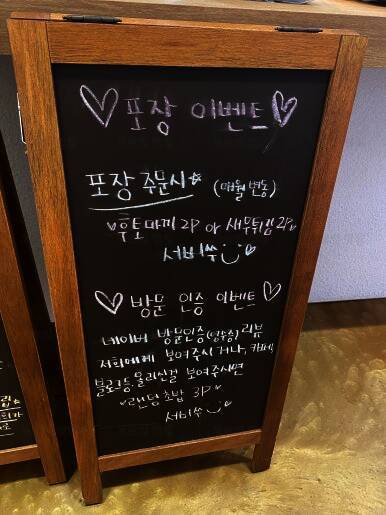 ♡포장 이벤트♡
포장 주문시☆ (매월 변동)
♥후토마끼 2P or 새우튀김 2P♥
서비쓰♥
♡방문 인증 이벤트♡
네이버 방문인증(영수증) 리뷰
저희에게 보여주시거나, 카페,
블로그등 올리신걸 보여주시면
♥랜덤초밥 3P♥
서비쓰♥